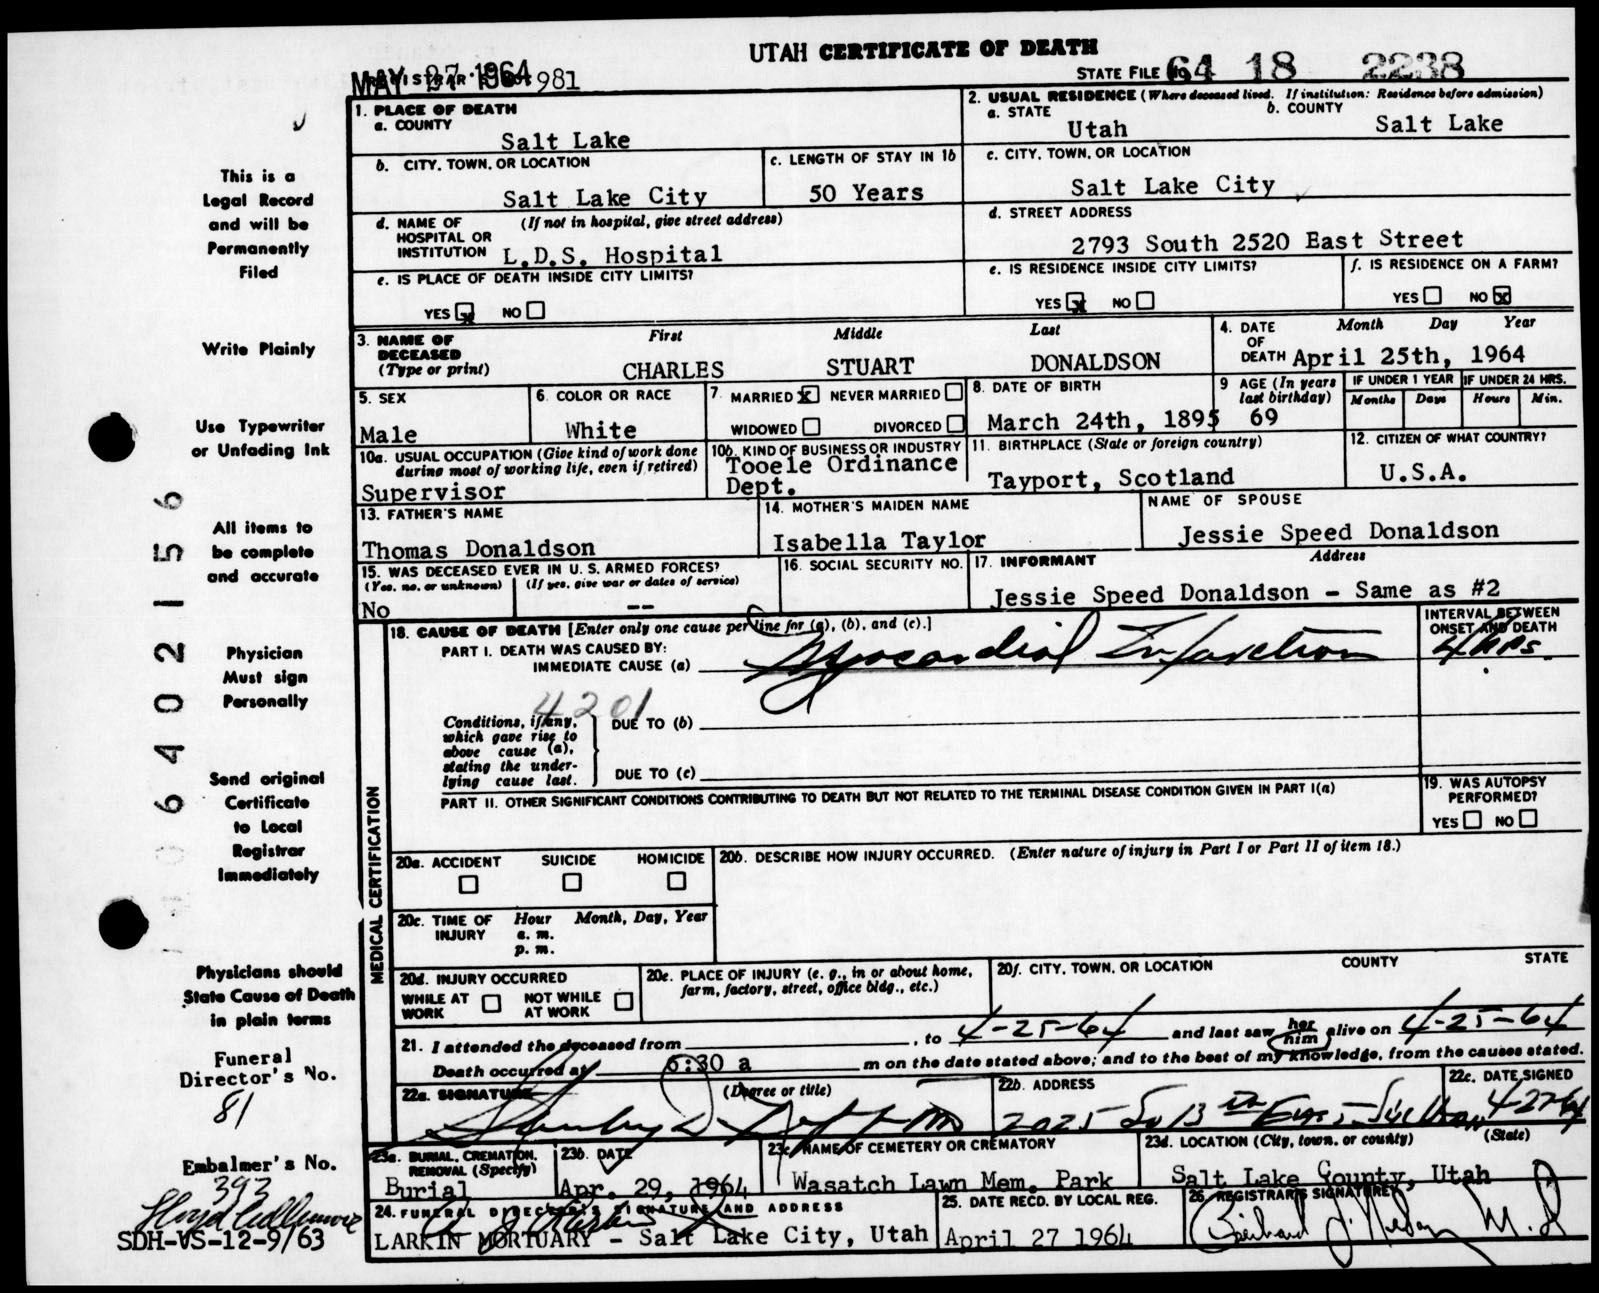 UTAH CERTIFICATE OF DEATH
MAY 27 1964
REGISTRAR'S NO. 981
STATE FILE NO. 64 18 2238
1. PLACE OF DEATH
a. COUNTY
Salt Lake
2. USUAL RESIDENCE (Where deceased lived. If institution: Residence before admission)
a. STATE
Utah
b. COUNTY
Salt Lake
b. CITY, TOWN, OR LOCATION
Salt Lake City
c. LENGTH OF STAY IN 1b
50 Years
c. CITY, TOWN, OR LOCATION
Salt Lake City
d. NAME OF HOSPITAL OR INSTITUTION
(If not in hospital, give street address)
L.D.S. Hospital
d. STREET ADDRESS
2793 South 2520 East Street
e. IS PLACE OF DEATH INSIDE CITY LIMITS?
YES x NO
e. IS RESIDENCE INSIDE CITY LIMITS?
YES x NO
f. IS RESIDENCE ON A FARM?
YES NO x
3. NAME OF DECEASED (Type or print)
First Middle Last
CHARLES STUART DONALDSON
4. DATE OF DEATH
Month Day Year
April 25th, 1964
5. SEX
Male
6. COLOR OR RACE
White
7. MARRIED x NEVER MARRIED
WIDOWED DIVORCED
8. DATE OF BIRTH
March 24th, 1895
9 AGE (In years last birthday)
69
IF UNDER 1 YEAR
Months Days
IF UNDER 24 HRS.
Hours Min.
10a. USUAL OCCUPATION (Give kind of work done during most of working life, even if retired)
Supervisor
10b. KIND OF BUSINESS OR INDUSTRY
Tooele Ordinance
Dept.
11. BIRTHPLACE (State or foreign country)
Tayport, Scotland
12. CITIZEN OF WHAT COUNTRY?
U.S.A.
13. FATHER'S NAME
Thomas Donaldson
14. MOTHER'S MAIDEN NAME
Isabella Taylor
NAME OF SPOUSE
Jessie Speed Donaldson
15. WAS DECEASED EVER IN U. S. ARMED FORCES?
(Yes, no, or unknown) (If yes, give war or dates of service)
No --
16. SOCIAL SECURITY NO.
17. INFORMANT Address
Jessie Speed Donaldson - Same as #2
MEDICAL CERTIFICATION
18. CAUSE OF DEATH [Enter only one cause per line for (a), (b), and (c).]
PART I. DEATH WAS CAUSED BY:
IMMEDIATE CAUSE (a)
Myocardial Infarction
INTERVAL BETWEEN
ONSET AND DEATH
4 hrs.
4201
Conditions, if any, which gave rise to above cause (a), stating the underlying cause last.
DUE TO (b)
DUE TO (c)
PART II. OTHER SIGNIFICANT CONDITIONS CONTRIBUTING TO DEATH BUT NOT RELATED TO THE TERMINAL DISEASE CONDITION GIVEN IN PART I(a)
19. WAS AUTOPSY PERFORMED?
YES NO
20a. ACCIDENT SUICIDE HOMICIDE
20b. DESCRIBE HOW INJURY OCCURRED. (Enter nature of injury in Part I or Part II of item 18.)
20c. TIME OF INJURY
Hour Month, Day, Year
a. m.
p. m.
20d. INJURY OCCURRED
WHILE AT WORK NOT WHILE AT WORK
20e. PLACE OF INJURY (e. g., in or about home, farm, factory, street, office bldg., etc.)
20f. CITY, TOWN, OR LOCATION COUNTY STATE
21. I attended the deceased from , to 4-25-64 and last saw her him alive on 4-25-64
Death occurred at 6:30 a m on the date stated above; and to the best of my knowledge, from the causes stated.
22a. SIGNATURE (Degree or title)
22b. ADDRESS
2025 So 13th East
22c. DATE SIGNED
4-27-64
23a. BURIAL, CREMATION, REMOVAL (Specify)
Burial
23b. DATE
Apr. 29, 1964
23c. NAME OF CEMETERY OR CREMATORY
Wasatch Lawn Mem. Park
23d. LOCATION (City, town, or county) (State)
Salt Lake County, Utah
24. FUNERAL DIRECTOR'S SIGNATURE AND ADDRESS
LARKIN MORTUARY - Salt Lake City, Utah
25. DATE RECD. BY LOCAL REG.
April 27 1964
26. REGISTRAR'S SIGNATURE
M.D.
This is a
Legal Record
and will be
Permanently
Filed
Write Plainly
Use Typewriter
or Unfading Ink
All items to
be complete
and accurate
Physician
Must sign
Personally
Send original
Certificate
to Local
Registrar
Immediately
Physicians should
State Cause of Death
in plain terms
Funeral
Director's No.
81
Embalmer's No.
393
SDH-VS-12-9/63
0 6 4 0 2 1 5 6